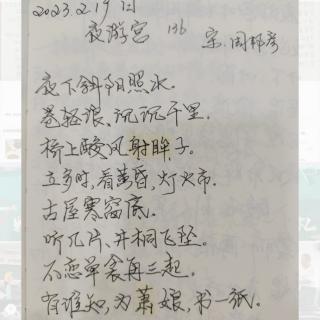 2023.2.19日
夜游宫 136 宋.周邦彦
夜下斜阳照水.
卷轻浪、沉沉千里.
桥上酸风射眸子.
立多时,看黄昏,灯火市.
古屋寒窗底.
听几片、井桐飞坠.
不恋单衾再三起.
有谁知,为萧娘,书一纸.